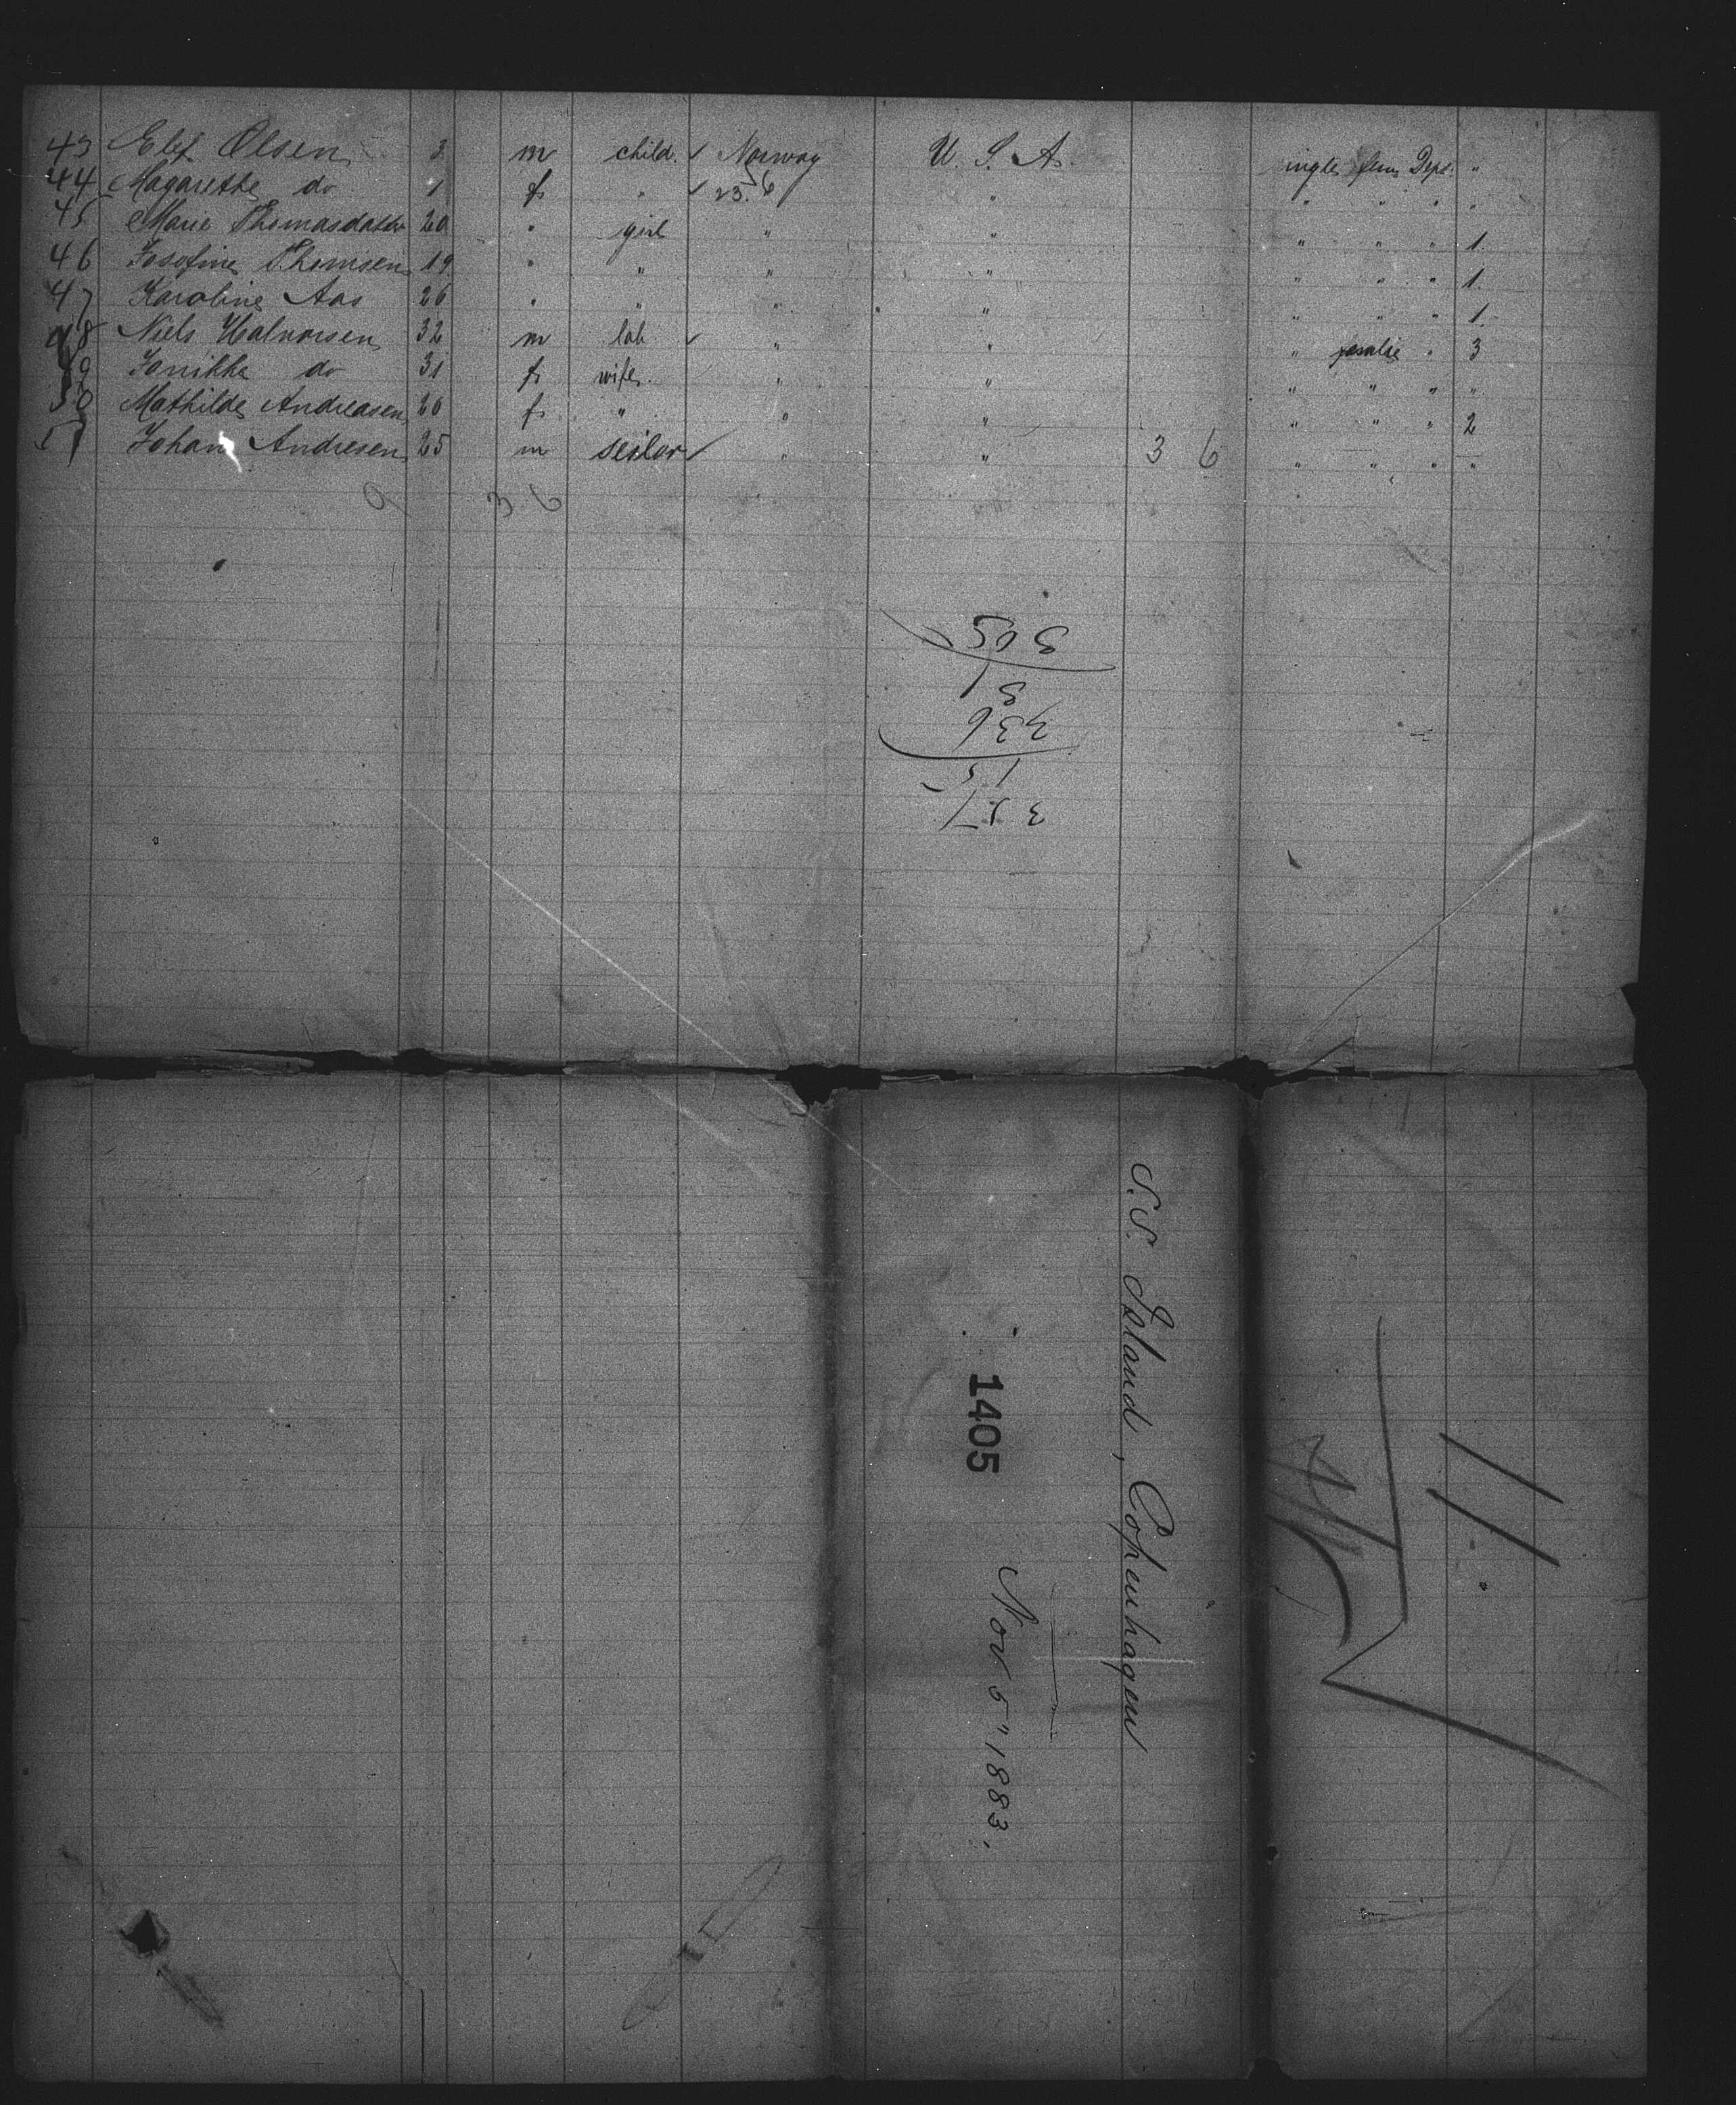 43 Elef Olsen 3 m child. ✓ Norway U. S. A. ingle fem Dept. "
44 Magarethe do 1 f " ✓ 23. 56 " " " " "
45 Marie Thomasdatter 20 " girl " " " " " 1.
46 Josofine Thomsen 19. " " " " " " " 1.
47 Karoline Aas 26 " " " " " " " 1.
48 Niels Halvorsen 32 m lab ✓ " " " familie " 3
49 Jonikke do 31 f wife. " " " " " "
50 Mathilde Andreasen 26 f " " " " " " 2
51 Johan Andresen 25 m seilor ✓ " " 3 6 " " " "
9 3 6
305
3
336
15
S.S. Island, Copenhagen
1405
Nov 5" 1883.